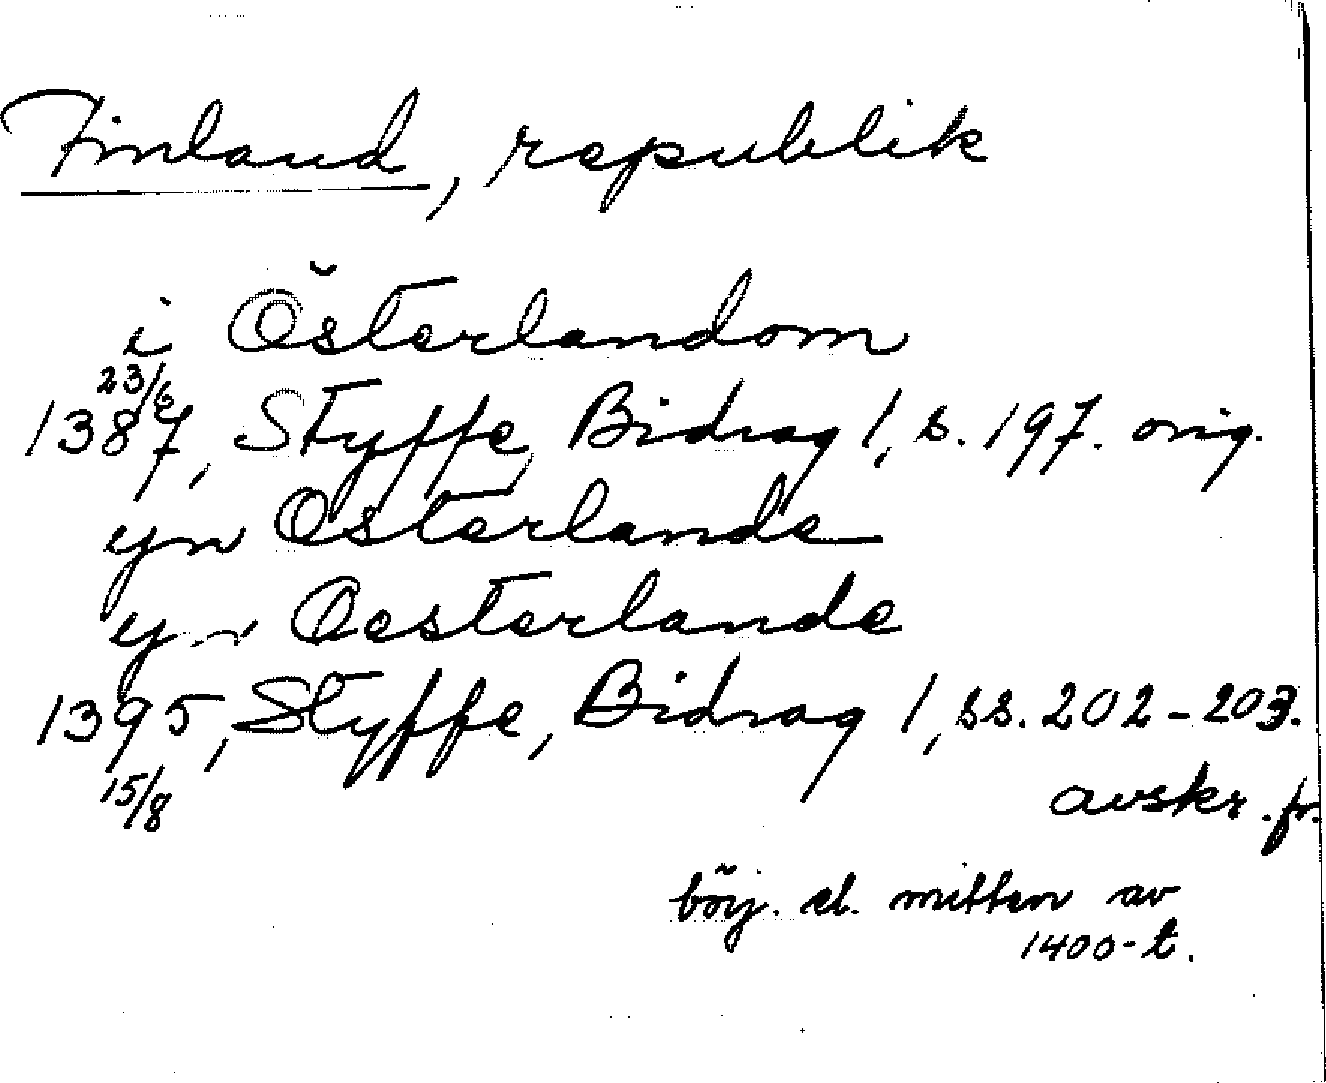 Finland, republik
i Österlandom
23/6
1387, Styffe, Bidrag 1, s. 197. orig.
yn Osterlande
yn Oesterlande
1395, Styffe, Bidrag 1, ss. 202-203.
15/8
avskr. fr.
börj. el. mitten av
1400-t.